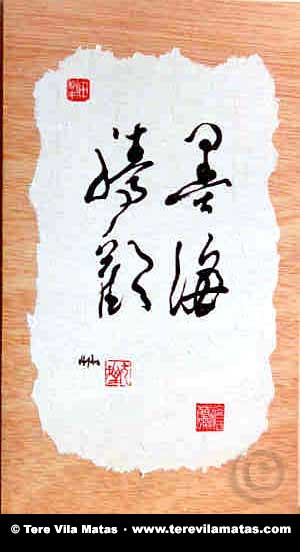 墨海
騰歡
© Tere Vila Matas · www.terevilamatas.com